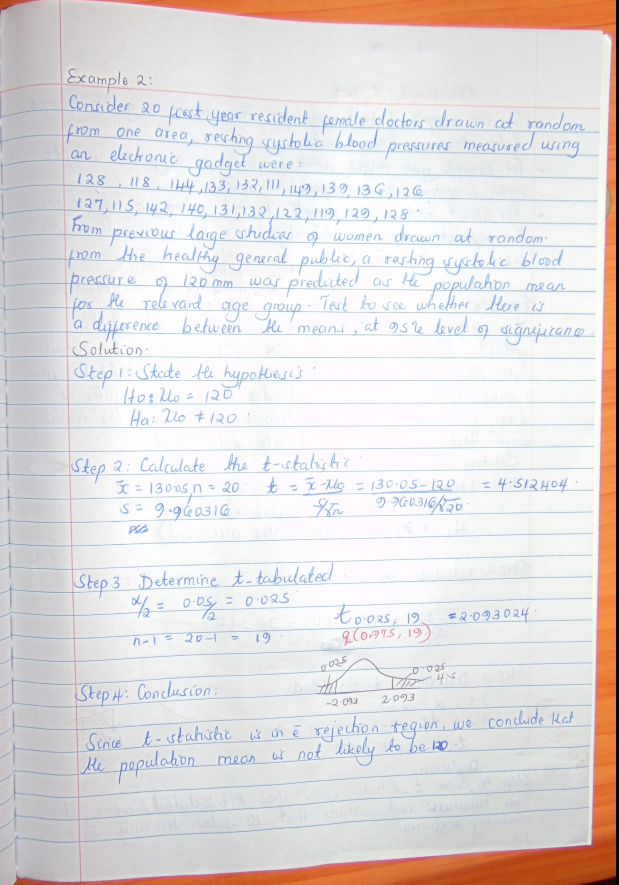 Example 2:
Consider 20 first year resident female doctors drawn at random
from one area, resting systolic blood pressures measured using
an electronic gadget were:
128, 118, 144, 133, 132, 111, 149, 139, 136, 126
127, 115, 142, 140, 131, 132, 122, 119, 129, 128.
From previous large studies of women drawn at random
from the healthy general public, a resting systolic blood
pressure of 120mm was predicted as the population mean
for the relevant age group. Test to see whether there is
a difference between the means, at 95% level of significance.
Solution.
Step 1: State the hypothesis.
Ho: μo = 120
Ha: μo ≠ 120.
Step 2: Calculate the t-statistic
x̄ = 130.05, n = 20 t = x̄-μo / s/√n = 130.05-120 / 9.960316/√20 = 4.512404.
s = 9.960316
Step 3: Determine t-tabulated
α/2 = 0.05/2 = 0.025
n-1 = 20-1 = 19. t0.025, 19 = 2.093024.
q(0.975, 19)
0.025 0.025
Step 4: Conclusion: 4.5
-2.093 2.093
Since t-statistic is in ē rejection region, we conclude that
the population mean is not likely to be 120.